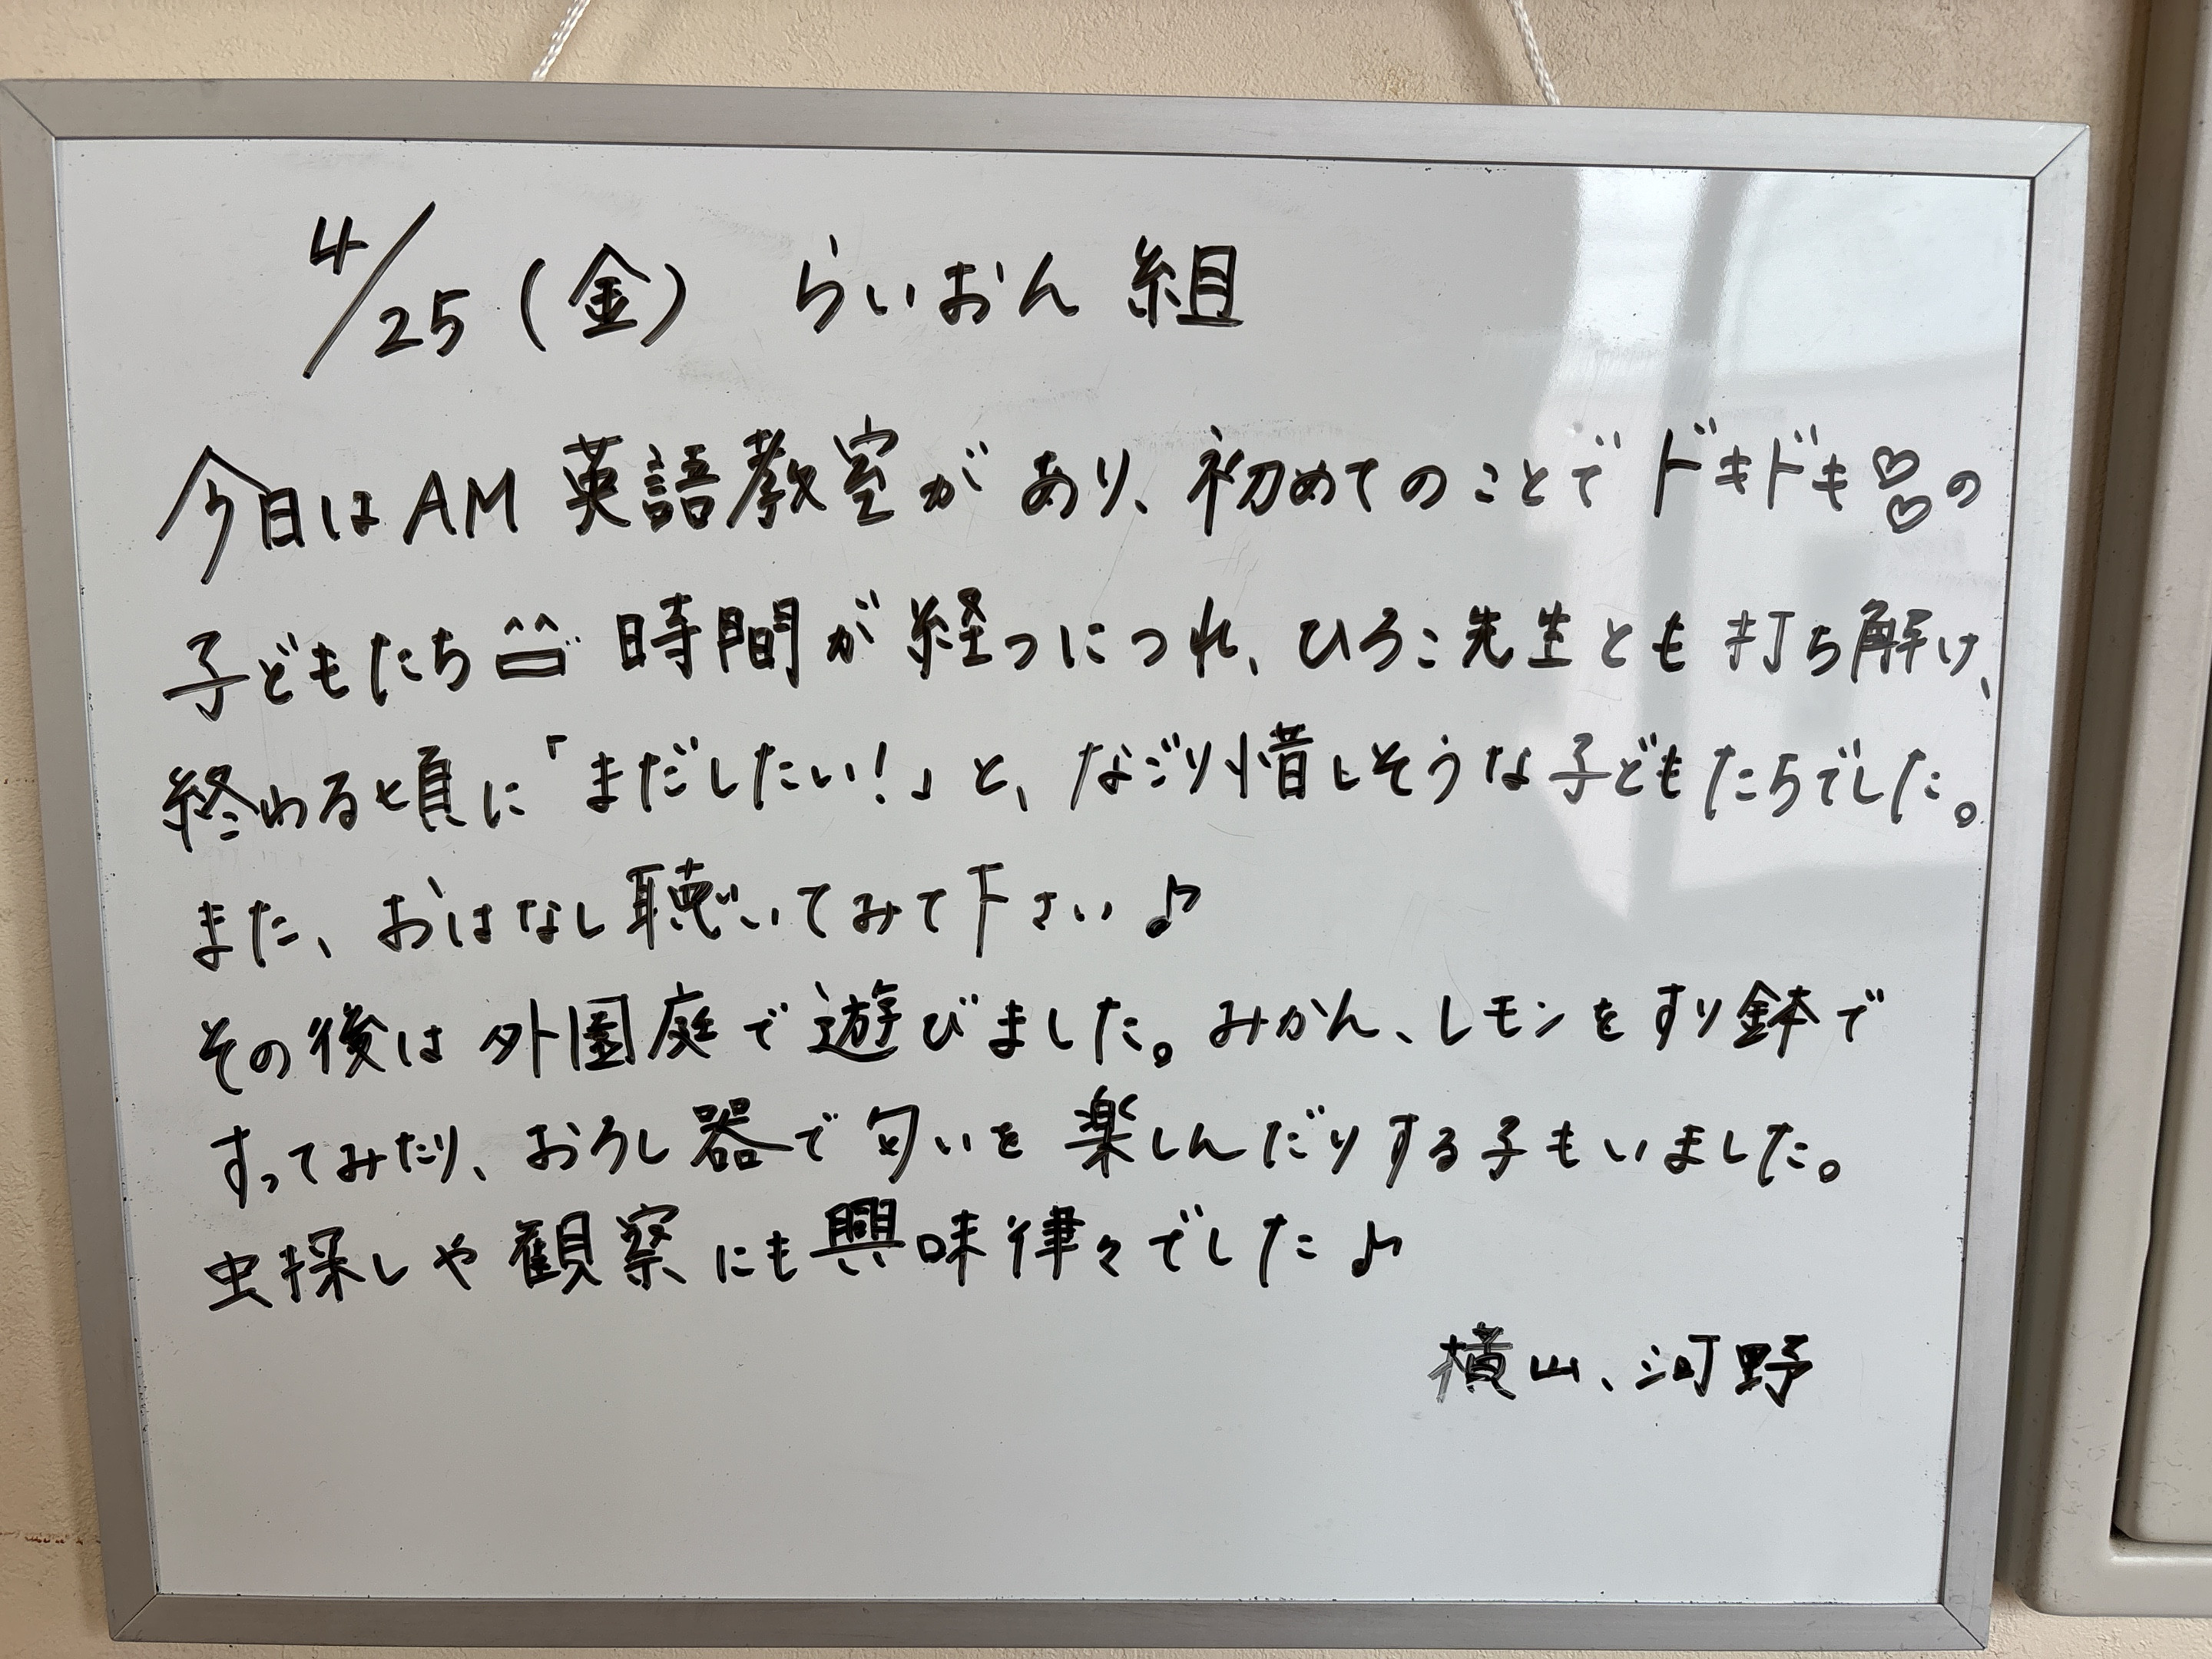 4/25(金) らいおん組
今日はAM英語教室があり、初めてのことでドキドキ♡♡の
子どもたち^^ 時間が経つにつれ、ひろこ先生とも打ち解け、
終わる頃に「まだしたい!」と、なごり惜しそうな子どもたちでした。
また、おはなし聴いてみて下さい♪
その後は外園庭で遊びました。みかん、レモンをすり鉢で
すってみたり、おろし器で匂いを楽しんだりする子もいました。
虫探しや観察にも興味律々でした♪
横山、河野